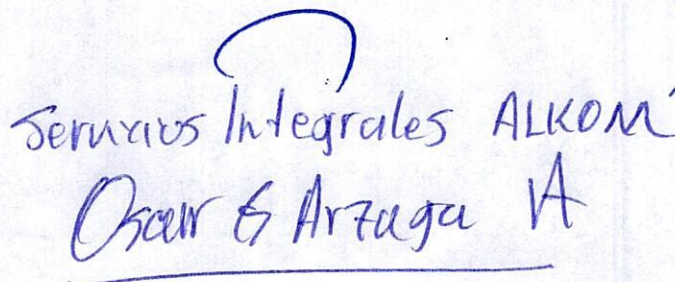 Servicios Integrales ALKOM
Oscar G Arzaga A